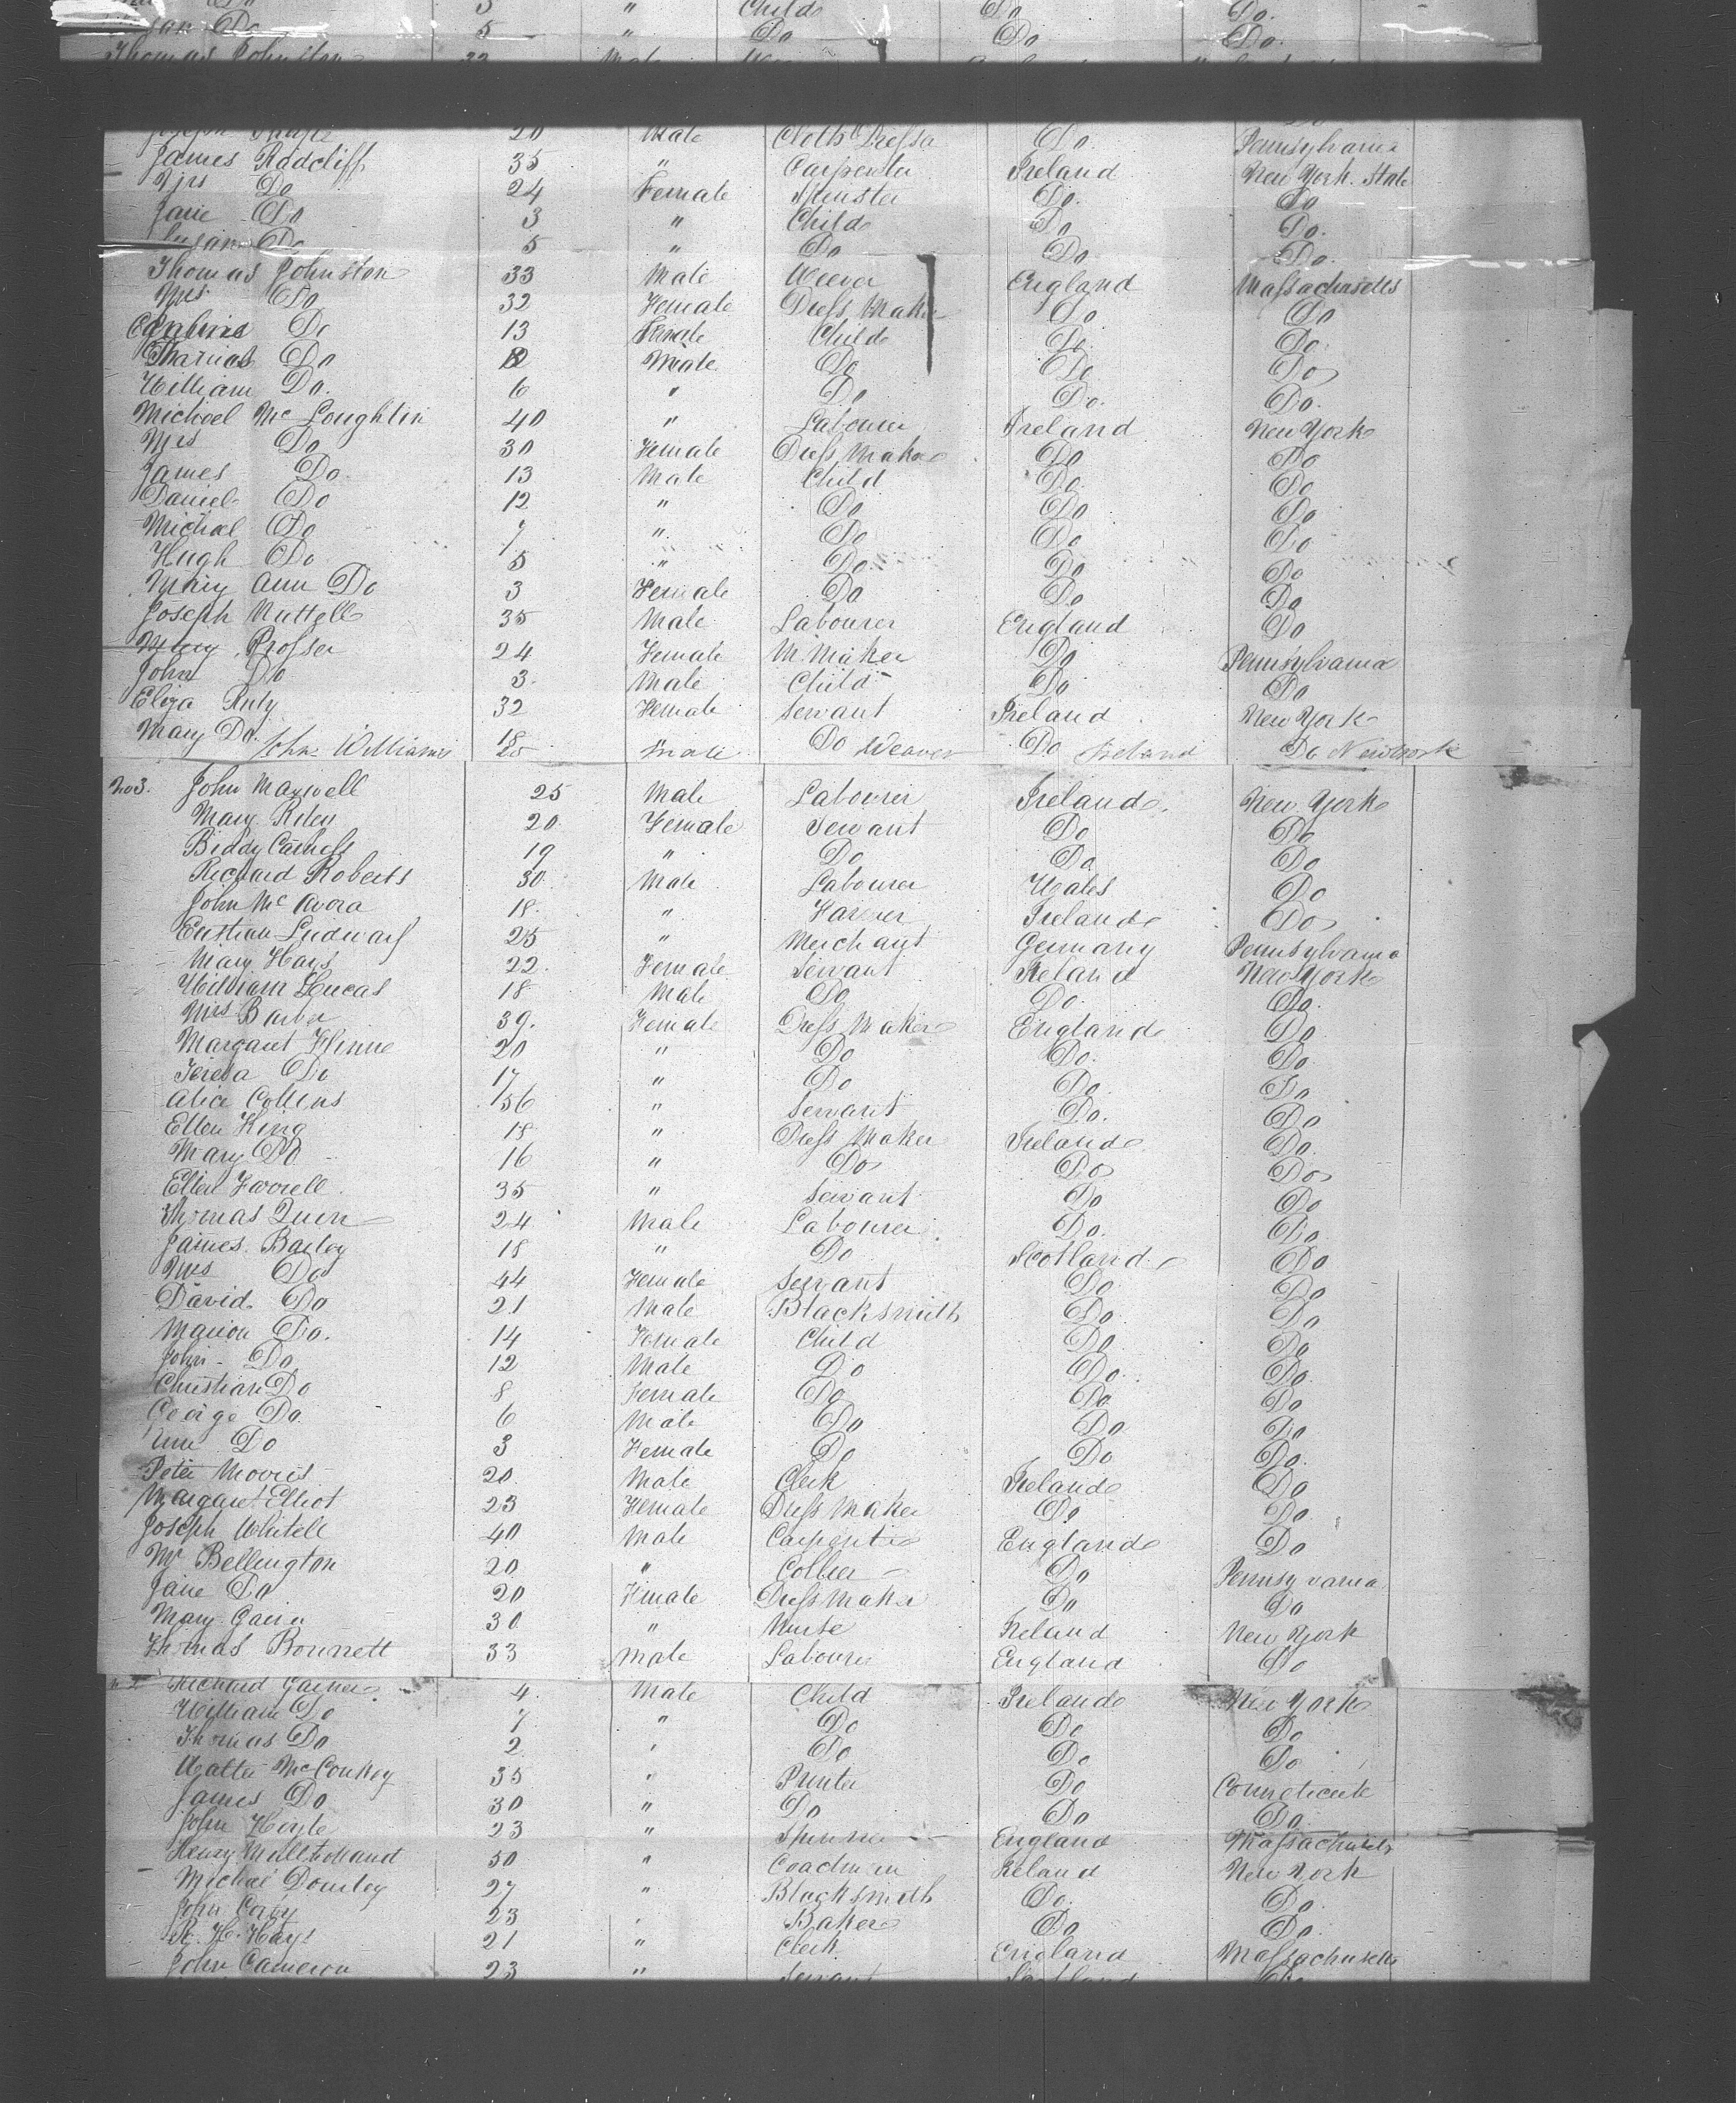 Do 3 " Child Do Do.
Do 5 " Do Do Do.
Thomas Johnston
Joseph 20 Male Cloth Do. Pennsylvania
James Radcliff 35 " Carpenter Ireland New York. State
Mrs Do 24 Female Do. Do
Jane Do 3 " Child Do Do.
Susan Do 5 " Do Do Do.
Thomas Johnston 33 Male Weever England Massachusetts
Mrs Do 32 Female Dress Maker Do Do
Do 13 Female Child Do. Do.
Thomas Do Male Do Do Do
William Do. 6 " Do Do. Do.
Michael Mc Loughlin 40 " Labourer Ireland New York
Mrs Do 30 Female Dress Maker Do Do
James Do. 13 Male Child Do. Do
Daniel Do 12 " Do Do Do
Michael Do 7 " Do Do Do
Hugh Do 5 " Do Do Do
Mary Ann Do 3 Female Do Do Do
Joseph Nuttell 35 Male Labourer England Do
Mary Prosser 24 Female M. Maker Do Pennsylvania
John Do 3. Male Child Do Do
Eliza 32 Female Servant Ireland New York
Mary Do. 18 " Do Do Do
John Williams 25 Male Weaver Ireland New York
203. John Maxwell 25 Male Labourer Ireland. New York
Mary Riley 20 Female Servant Do Do
Biddy 19 " Do Do Do
Richard Roberts 30 Male Labourer Wales Do
John Mc Avora 18. " Farmer Ireland Do
25 " Merchant Germany Pennsylvania
Mary Hays 22. Female Servant Ireland New York
William Lucas 18 Male Do Do Do.
Mrs Barber 39. Female Dress Maker England Do
Margaret 20 " Do Do. Do
Teresa Do 17 " Do Do. Do
Alice Collins 56 " Servant Do. Do
Ellen King 18 " Dress Maker Ireland Do.
Mary Do 16 " Do Do Do
Ellen Farrell 35 " Servant Do Do
Thomas Quen 24 Male Labourer Do. Do.
James Barley 18 " Do Scotland Do
Mrs Do 44 Female Servant Do Do
David. Do 21 Male Blacksmith Do. Do
Marion Do. 14 Female Child Do Do
John - Do 12 Male Do Do Do.
Christian Do 8 Female Do Do Do
George Do 6 Male Do Do Do
Ann Do 3 Female Do Do Do.
Peter Morris 20 Male Clerk Ireland Do
Margaret Elliot 23 Female Dress Maker Do Do
Joseph Whitell 40 Male Carpenter England Do
Mr Bellington 20 " Collier Do Pennsyvania
Jane Do 20 Female Dress Maker Do Do
Mary 30 " Nurse Ireland New York
Thomas Bonnett 33 Male Labourer England Do
Richard 4. Male Child Ireland New York
William Do 7 " Do Do Do
Thomas Do 2 " Do Do Do
Walter McConkey 35 " Printer Do Connecticute
James Do 30 " Do Do Do
John Hoyle 23 " Spinner England Massachusetts
Henry 50 " Coachman Ireland New York
Michael 27 " Blacksmith Do. Do
John 23 " Baker Do Do.
R. H. Hays 21 " Clerk England Massachusetts
John Cameron 23 " Servant Scotland Do